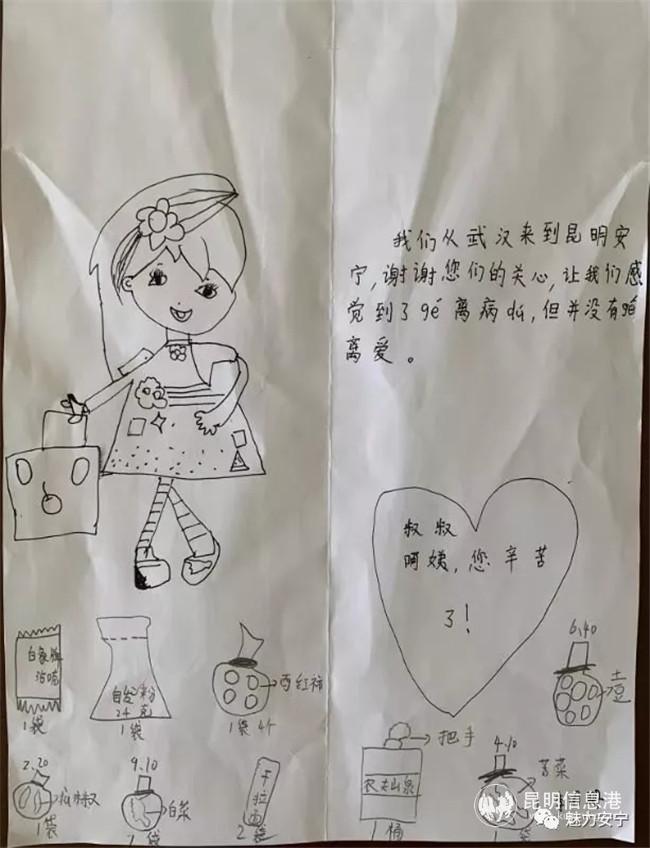 我们从武汉来到昆明安
宁,谢谢您们的关心,让我们感
觉到了gé离病dú,但并没有
离爱。
叔叔
啊姨,您辛苦
了!
6.40
土豆
1袋
24克
1袋
西红柿
1袋4个
2.20
1袋
9.10
白菜
2袋
把手
农夫山泉
1桶
4.10
苦菜
昆明信息港
魅力安宁